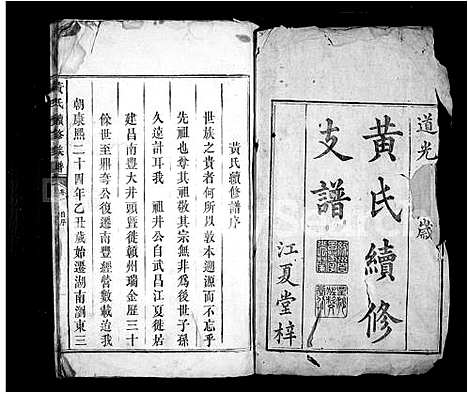 道光
歲
黃氏續修
支譜
江夏堂梓
黃氏續修譜序
世族之貴者何所以敦本遡源而不忘乎
先祖也尊祖敬其宗無非爲後世子孫
久遠計耳我 祖井公自武昌江夏徙居
建昌南豐大井頭暨徙贛州瑞金歷三十
餘世至鼎克公復遷南豐經營數載迨我
朝康熙二十四年乙丑歲始遷湖南瀏東三
黃氏續修族譜